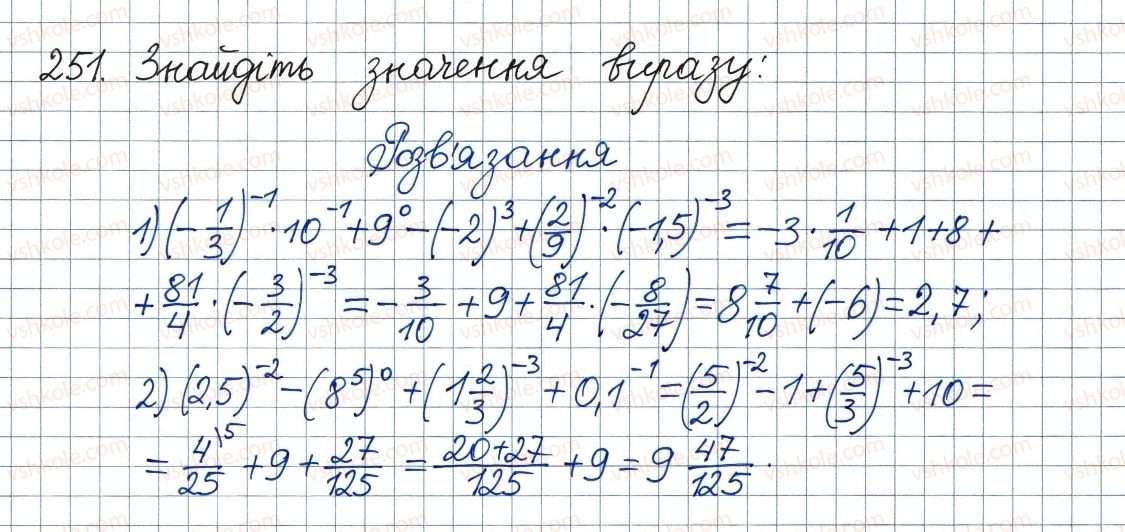 251. Знайдіть значення виразу:
Розв'язання
1) (-1/3)^-1 · 10^-1 + 9^0 - (-2)^3 + (2/9)^-2 · (-1,5)^-3 = -3 · 1/10 + 1 + 8 +
+ 81/4 · (-3/2)^-3 = -3/10 + 9 + 81/4 · (-8/27) = 8 7/10 + (-6) = 2,7;
2) (2,5)^-2 - (8^5)^0 + (1 2/3)^-3 + 0,1^-1 = (5/2)^-2 - 1 + (5/3)^-3 + 10 =
= 4\5/25 + 9 + 27/125 = 20+27/125 + 9 = 9 47/125.